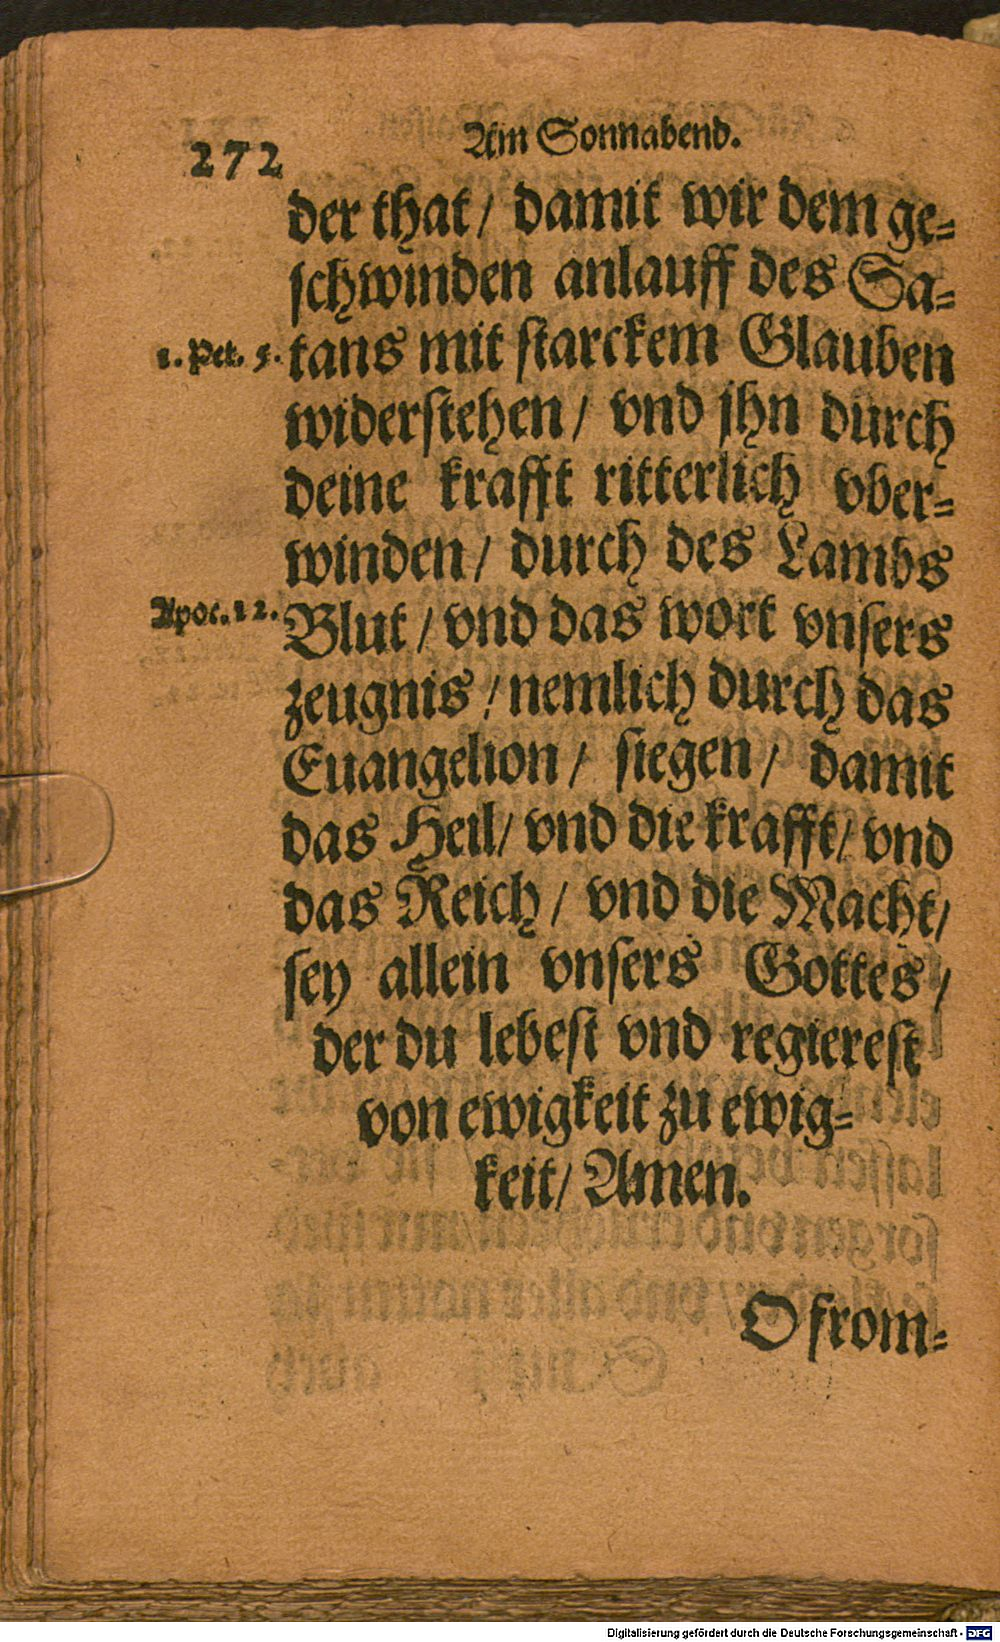 272
Am Sonnabend.
der that / damit wir dem ge-
schwinden anlauff des Sa-
1. Pet. 5. tans mit starckem Glauben
widerstehen / vnd jhn durch
deine krafft ritterlich vber-
winden / durch des Lambs
Apoc. 12. Blut / vnd das wort vnsers
zeugnis / nemlich durch das
Euangelion / siegen / damit
das Heil / vnd die krafft / vnd
das Reich / vnd die Macht /
sey allein vnsers Gottes /
der du lebest vnd regierest
von ewigkeit zu ewig-
keit / Amen.
O from-
Digitalisierung gefördert durch die Deutsche Forschungsgemeinschaft - DFG